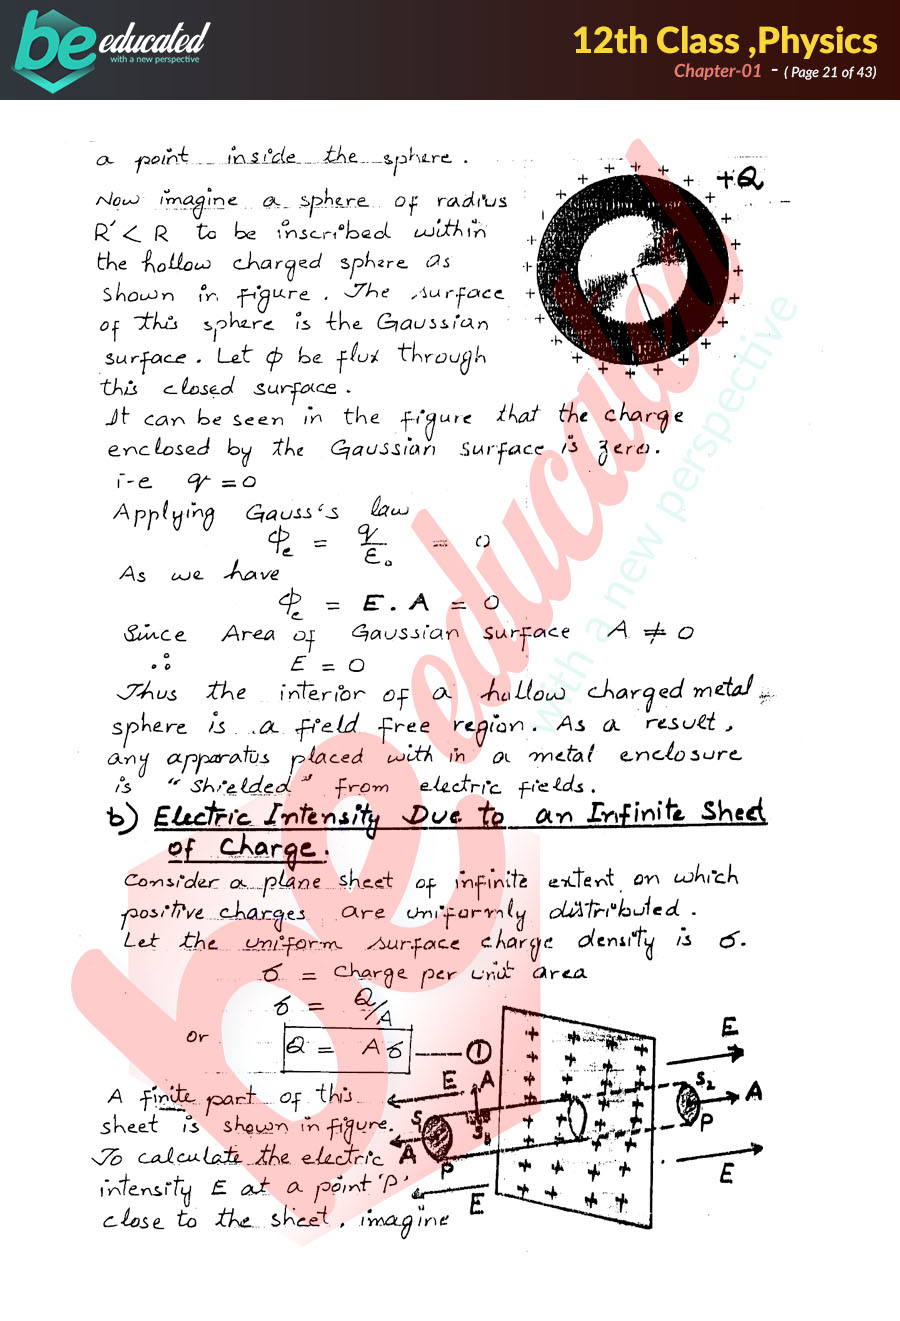 be educated
with a new perspective
12th Class ,Physics
Chapter-01 - ( Page 21 of 43)
a point inside the sphere.
+Q
Now imagine a sphere of radius
R' < R to be inscribed within
the hollow charged sphere as
shown in figure. The surface
of this sphere is the Gaussian
surface. Let ϕ be flux through
this closed surface.
It can be seen in the figure that the charge
enclosed by the Gaussian surface is zero.
i-e q = 0
Applying Gauss's law
ϕe = q/ε₀ = 0
As we have
ϕe = E . A = 0
Since Area of Gaussian surface A ≠ 0
∴ E = 0
Thus the interior of a hollow charged metal
sphere is a field free region. As a result,
any apparatus placed with in a metal enclosure
is "shielded" from electric fields.
b) Electric Intensity Due to an Infinite Sheet
of Charge.
Consider a plane sheet of infinite extent on which
positive charges are uniformly distributed.
Let the uniform surface charge density is σ.
σ = Charge per unit area
σ = Q/A
or Q = Aσ —— ①
A finite part of this
sheet is shown in figure.
To calculate the electric
intensity E at a point 'P'
close to the sheet, imagine
E
E A
S₂
A
P
A
P
E
E
be educated
with a new perspective